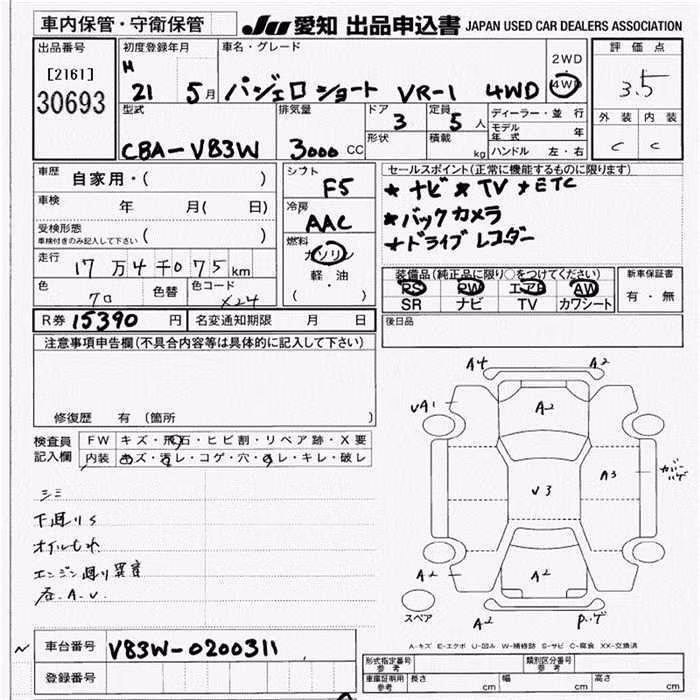 車内保管・守衛保管
JU 愛知 出品申込書 JAPAN USED CAR DEALERS ASSOCIATION
出品番号
[2161]
30693
初度登録年月
H
21 5月
車名・グレード
パジェロ ショート VR-1 4WD
2WD
4WD
評価点
3.5
外装 内装
C C
型式
CBA-V83W
排気量
3000 CC
ドア
3
形状
定員
5 人
積載
kg
ディーラー・並行
モデル年式 年
ハンドル 左・右
車歴 自家用・( )
車検 年 月( 日)
受検形態
車検付きのみ記入して下さい ( )
走行 17万4千075km
色 クロ 色替 色コード X24
シフト
F5
冷房
AAC
燃料
ガソリン
軽・油
( )
セールスポイント(正常に機能するものに限ります)
★ナビ ★TV ★ETC
★バックカメラ
★ドライブレコーダー
装備品(純正品に限り○をつけてください)
PS PW エアB AW
SR ナビ TV カワシート
新車保証書
有・無
後日品
R券 15390 円 名変通知期限 月 日
注意事項申告欄(不具合内容等は具体的に記入して下さい)
修復歴 有 (箇所 )
検査員記入欄
FW キズ・飛石・ヒビ割・リペア跡・X要
内装 キズ・汚レ・コゲ・穴・スレ・キレ・破レ
シミ
下廻りS
オイルもれ
エンジン廻り異音
A4 A2
UA1 A2
V3 A3 カバーハゲ
A2 A2
A2 P.ゲ
スペア
A-キズ E-エクボ U-凹み W-補修跡 S-サビ C-腐食 XX-交換済
車台番号 V83W-0200311
登録番号
形式指定番号 参考 類別区分番号 参考
車庫証明用 参考 長さ cm 幅 cm 高さ cm